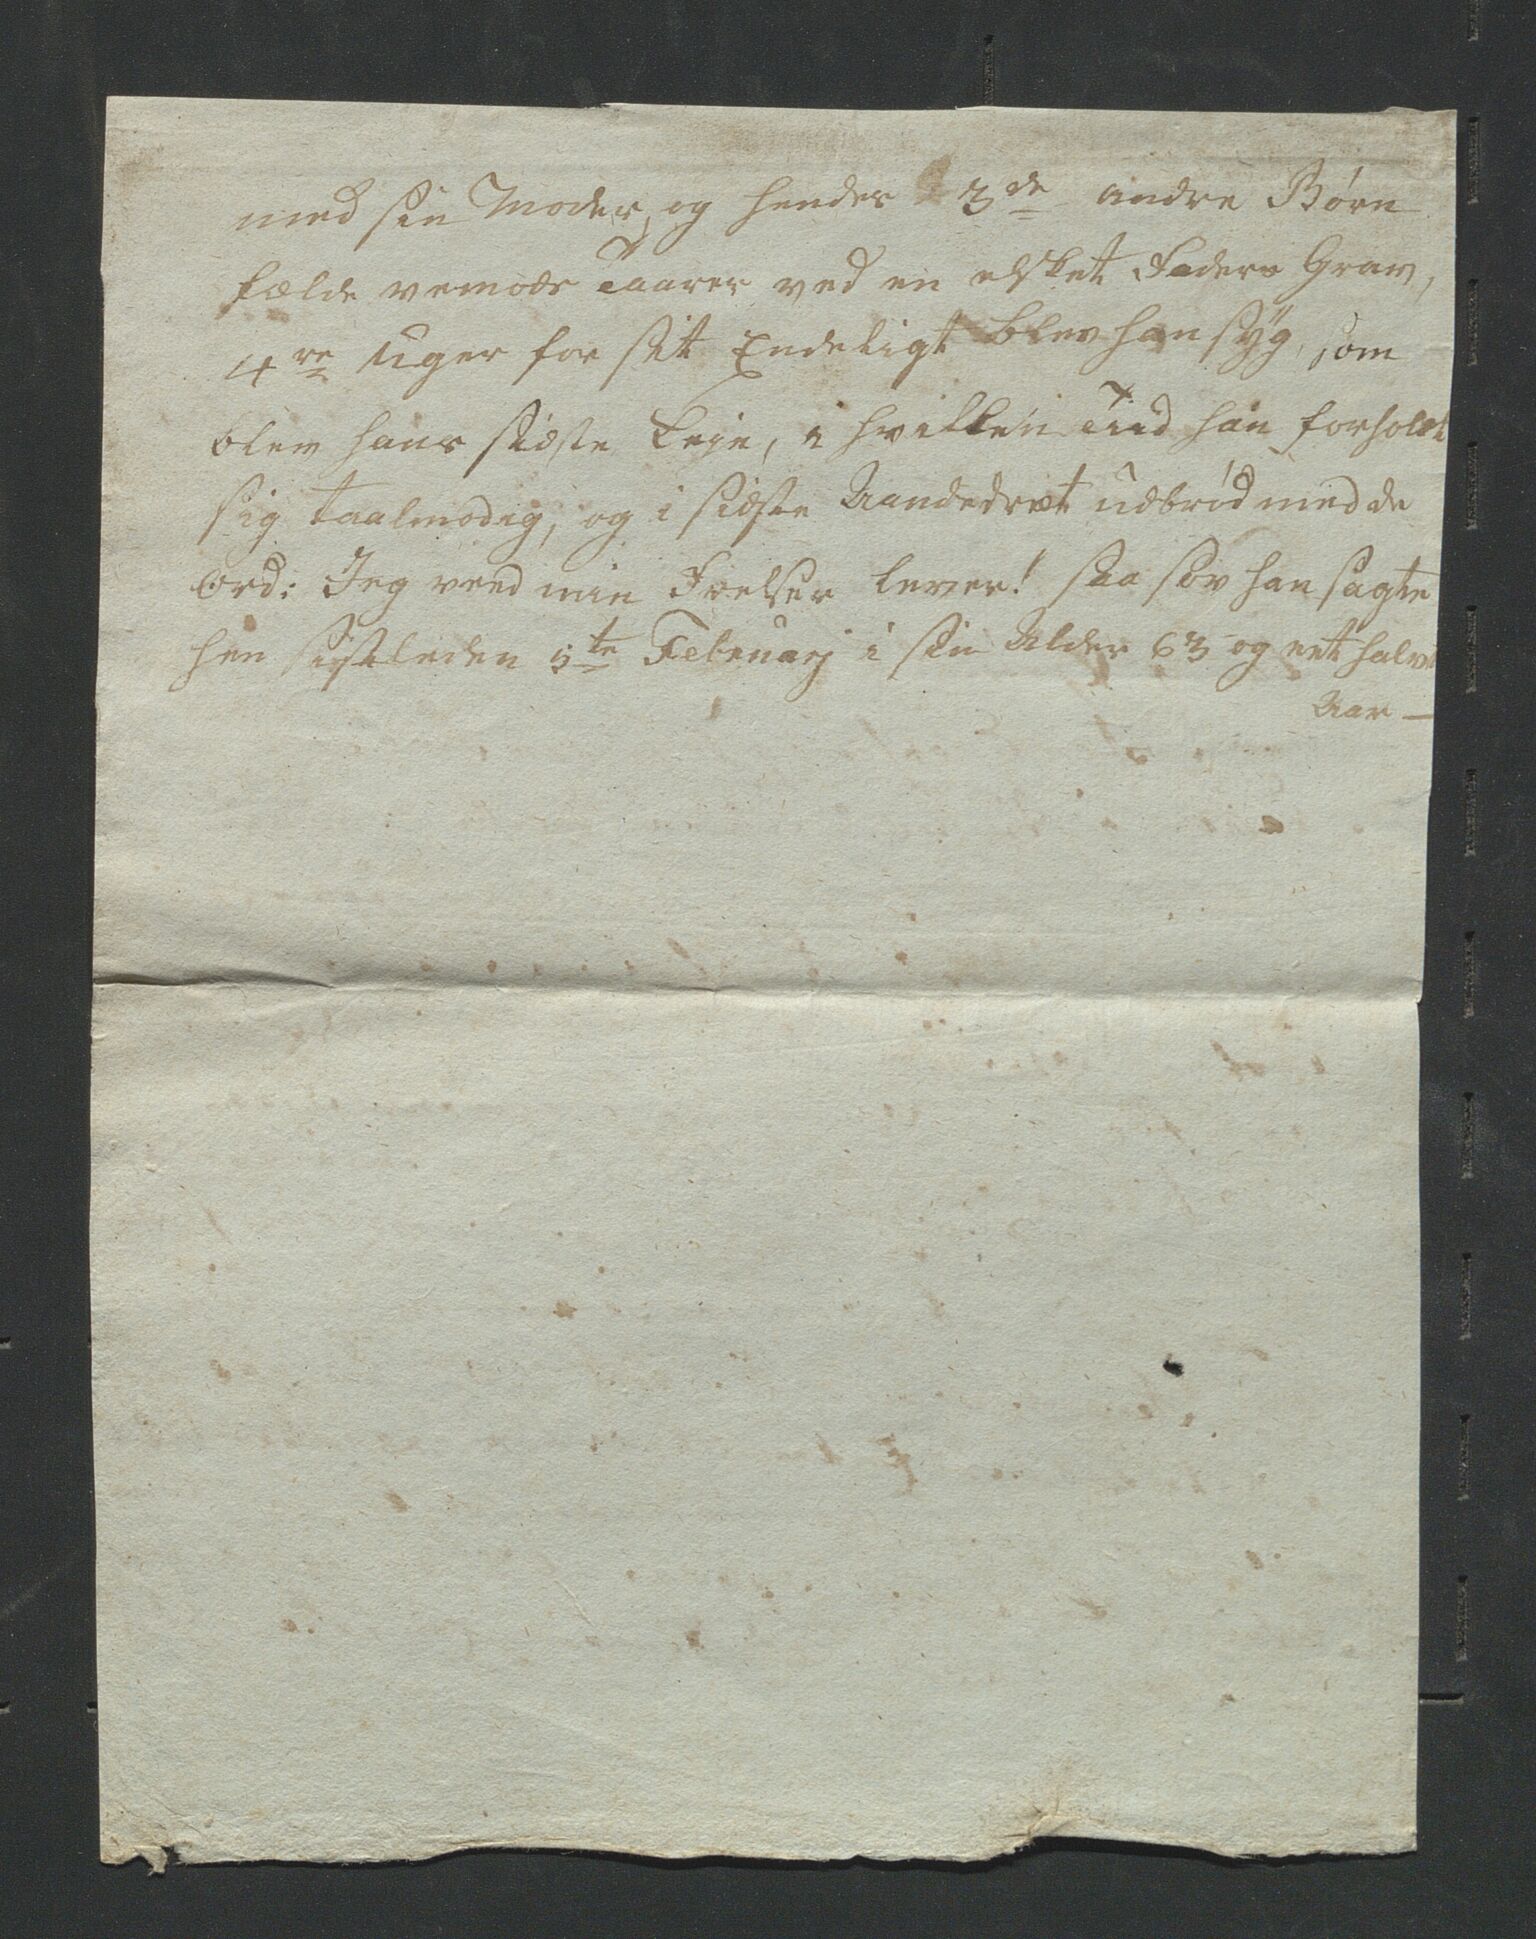 med sin Moder, og hendes 3de andre Børn
fælde vemods Taarer ved en elsket Faders Grav,
4re Uger for sit Endeligt blev han syg, som
blev hans sidste Leje, i hvilken Tiid han forholdt
sig taalmodig, og i sidste Aandedræt udbrød med de
Ord: Jeg veed min Frelser lever! saa sov han sagte
hen sistleden 5te Februarj i sin Alder 63 og eet halvt
Aar —